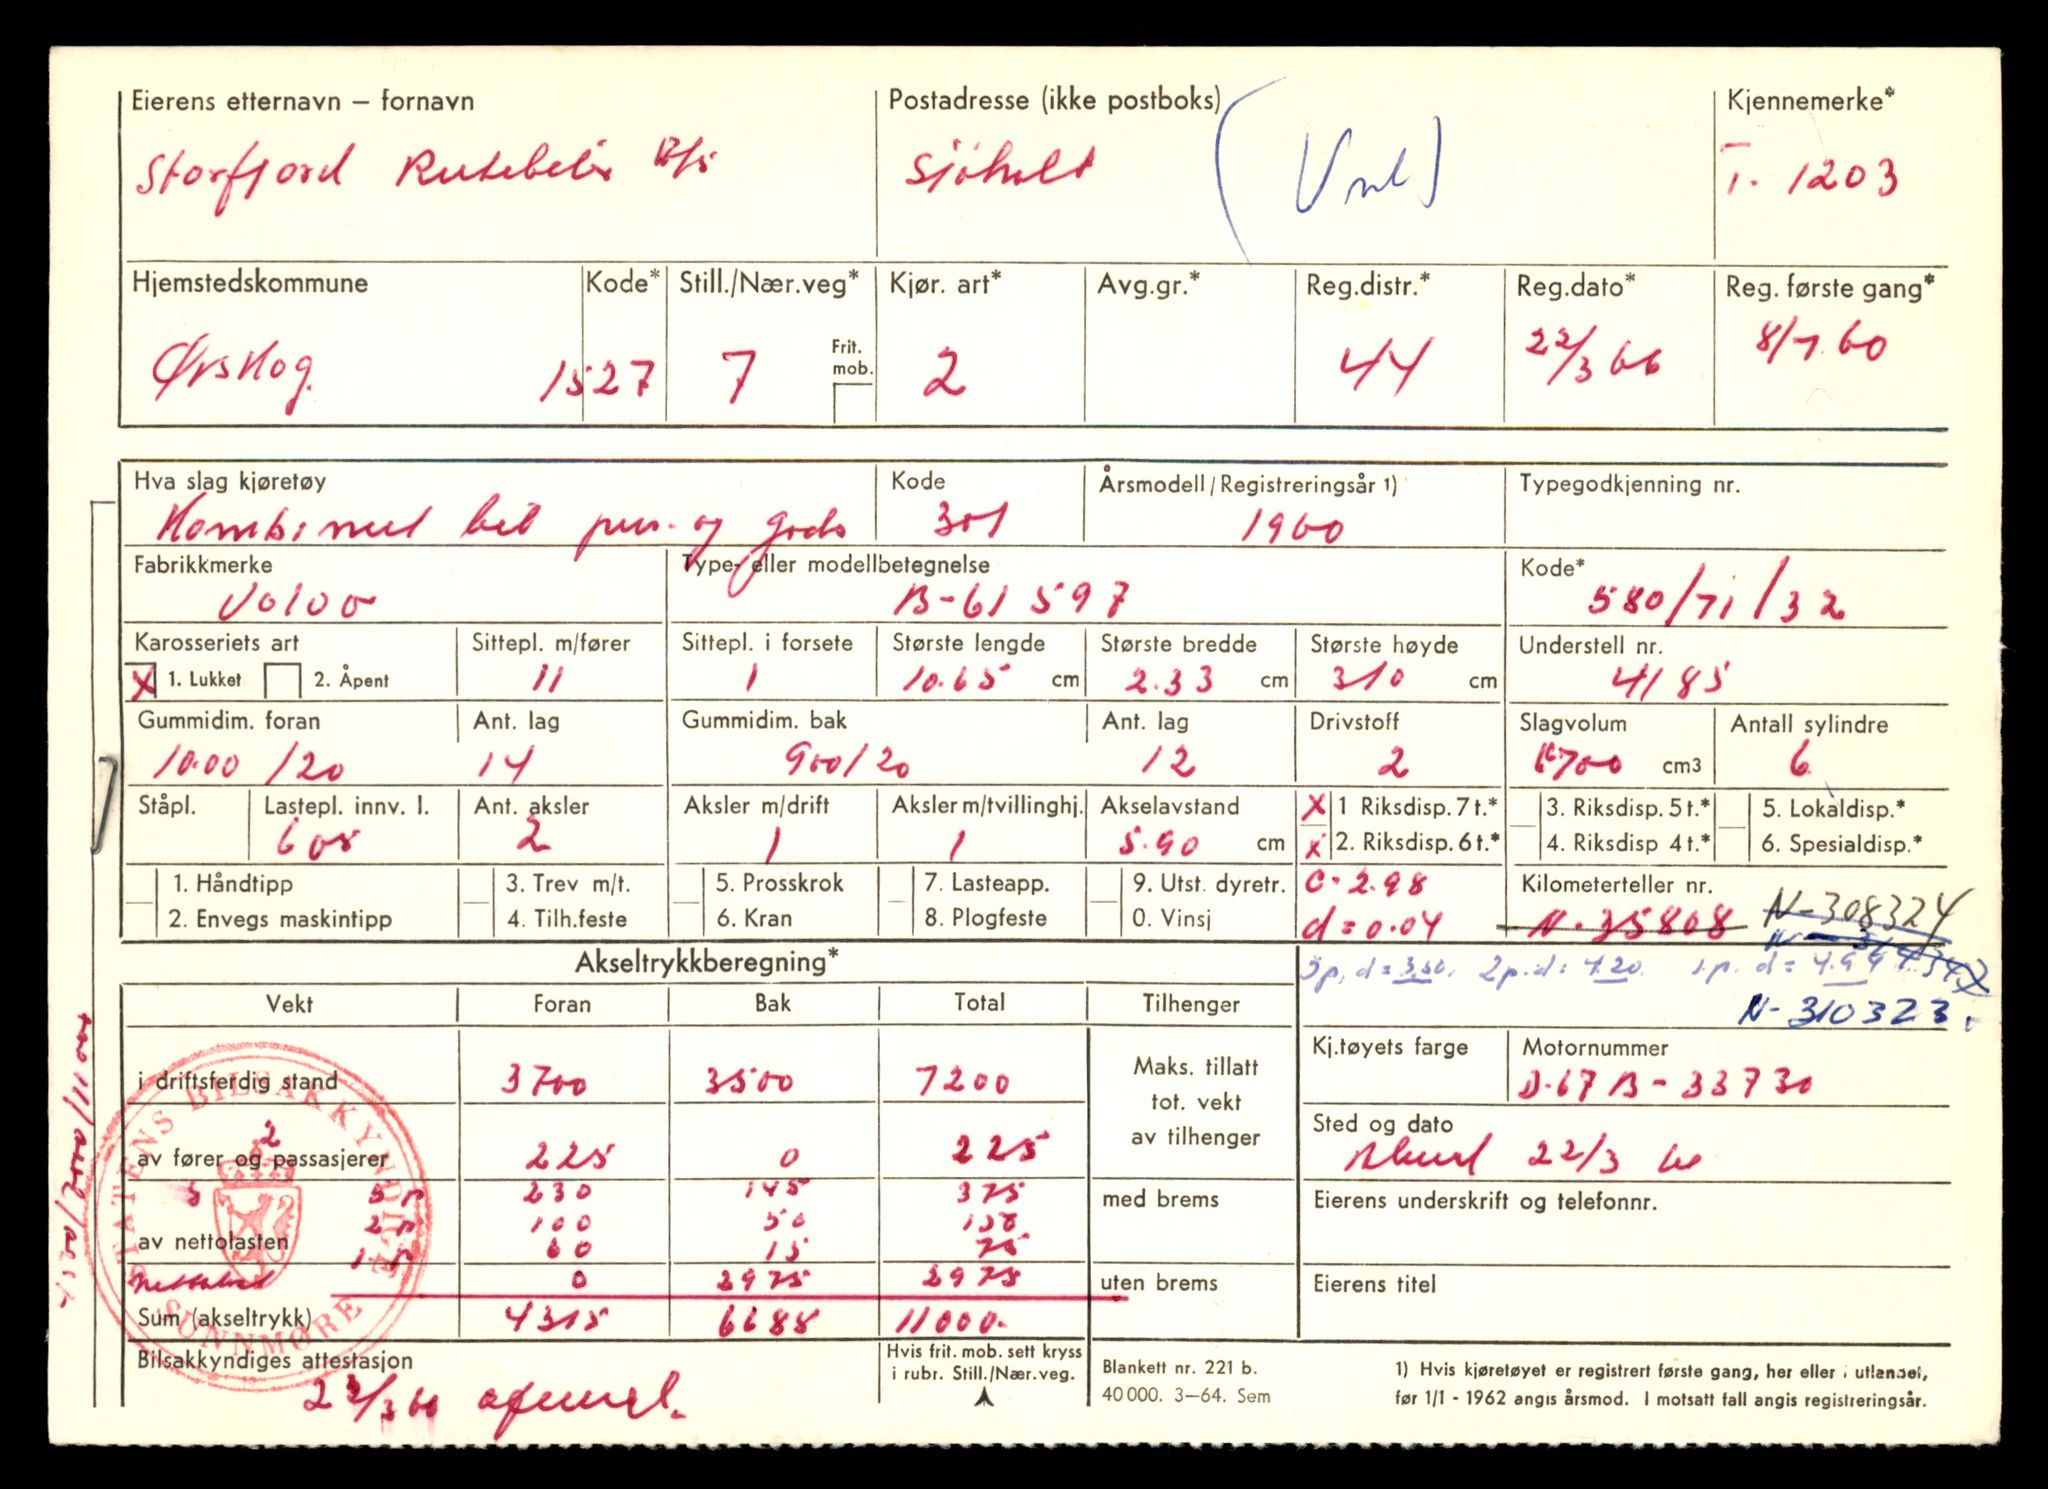 Eierens etternavn – fornavn Postadresse (ikke postboks) Kjennemerke*
Storfjord Rutebiler A/S Sjøholt T. 1203
Hjemstedskommune Kode* Still./Nær.veg* Kjør. art* Avg.gr.* Reg.distr.* Reg.dato* Reg. første gang*
Frit. mob.
Ørskog. 1527 7 2 44 22/3 66 8/7.60
Hva slag kjøretøy Kode Årsmodell/Registreringsår 1) Typegodkjenning nr.
Kombinert bil pers. og gods 301 1960
Fabrikkmerke Type- eller modellbetegnelse Kode*
Volvo B-61597 580/71/32
Karosseriets art Sittepl. m/fører Sittepl. i forsete Største lengde Største bredde Største høyde Understell nr.
X 1. Lukket 2. Åpent 11 1 10.65 cm 2.33 cm 310 cm 4185
Gummidim. foran Ant. lag Gummidim. bak Ant. lag Drivstoff Slagvolum Antall sylindre
10.00/20 14 900/20 12 2 6700 cm3 6
Ståpl. Lastepl. innv. l. Ant. aksler Aksler m/drift Aksler m/tvillinghj. Akselavstand X 1 Riksdisp. 7 t.* 3. Riksdisp. 5 t.* 5. Lokaldisp.*
600 2 1 1 5.90 cm x 2. Riksdisp. 6 t.* 4. Riksdisp 4 t.* 6. Spesialdisp.*
1. Håndtipp 3. Trev m/t. 5. Prosskrok 7. Lasteapp. 9. Utst. dyretr. c- 2.98 Kilometerteller nr.
2. Envegs maskintipp 4. Tilh.feste 6. Kran 8. Plogfeste 0. Vinsj d = 0.04 N-35808 N-308324
Akseltrykkberegning*
5p, d = 3.50. 2p. d = 4.20. 1.p. d = 4.99
Vekt Foran Bak Total Tilhenger
N-310323.
Kj.tøyets farge Motornummer
i driftsferdig stand 3700 3500 7200 Maks. tillatt tot. vekt av tilhenger
D.67 B-33730
Sted og dato
2
av fører og passasjerer 225 0 225
22/3 66
5 5 p 230 145 375 med brems
Eierens underskrift og telefonnr.
2 p 100 50 150
av nettolasten
1 p 60 15 75
Nettolast 0 2975 2975 uten brems
Eierens titel
Sum (akseltrykk) 4315 6688 11000.
Bilsakkyndiges attestasjon
Hvis frit. mob. sett kryss i rubr. Still./Nær.veg.
22/3 66
Blankett nr. 221 b.
40 000. 3–64. Sem
1) Hvis kjøretøyet er registrert første gang, her eller i utlandet,
før 1/1 - 1962 angis årsmod. I motsatt fall angis registreringsår.
STATENS BILSAKKYNDIGE
SUNNMØRE